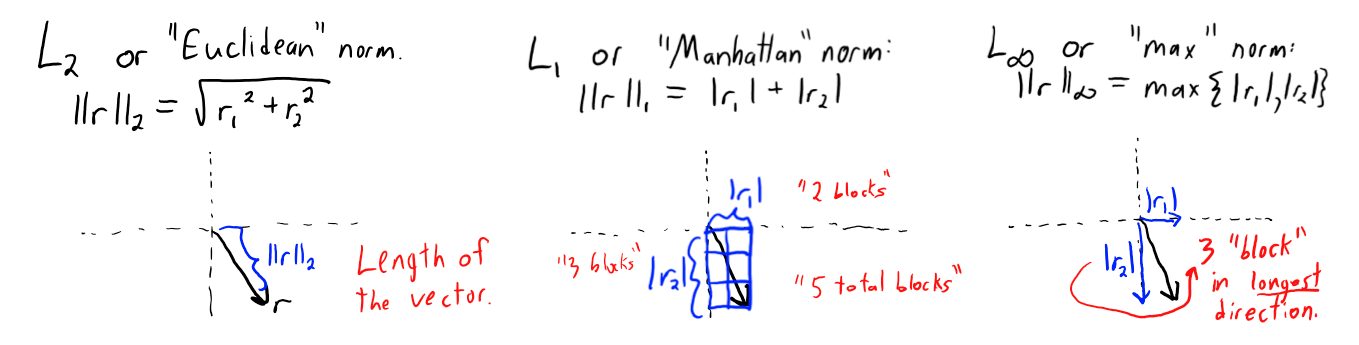 L₂ or "Euclidean" norm.
||r||₂ = √(r₁² + r₂²)
||r||₂
r
Length of
the vector.
L₁ or "Manhattan" norm:
||r||₁ = |r₁| + |r₂|
|r₁|
"2 blocks"
"3 blocks"
|r₂|
"5 total blocks"
L∞ or "max" norm:
||r||∞ = max{|r₁|,|r₂|}
|r₁|
|r₂|
3 "block"
in longest
direction.